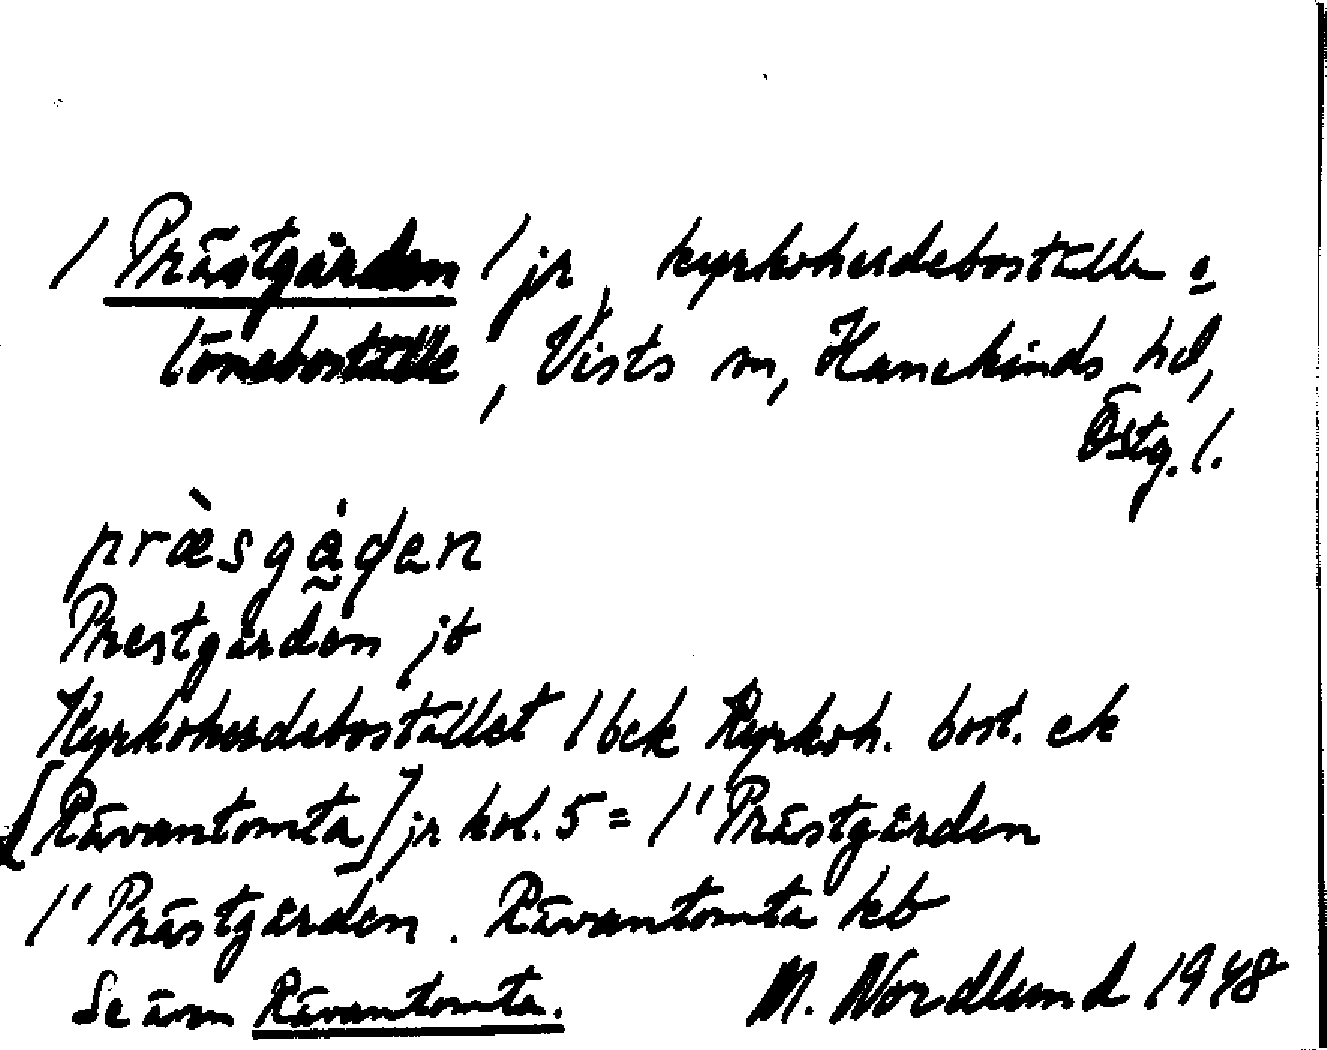 1 Prästgården 1 jr, kyrkoherdeboställe o
löneboställe, Vists sn, Hanekinds hd,
Östg. l.
præ̀sgå̇ɖen
Prestgården jb
Kyrkoherdebostället 1 bek Kyrkoh. bost. ek
[Rävantomta] jr kol. 5 = 1" Prästgården
1" Prästgården. Rävantomta hb
Se även Rävantomta. M. Nordlund 1948